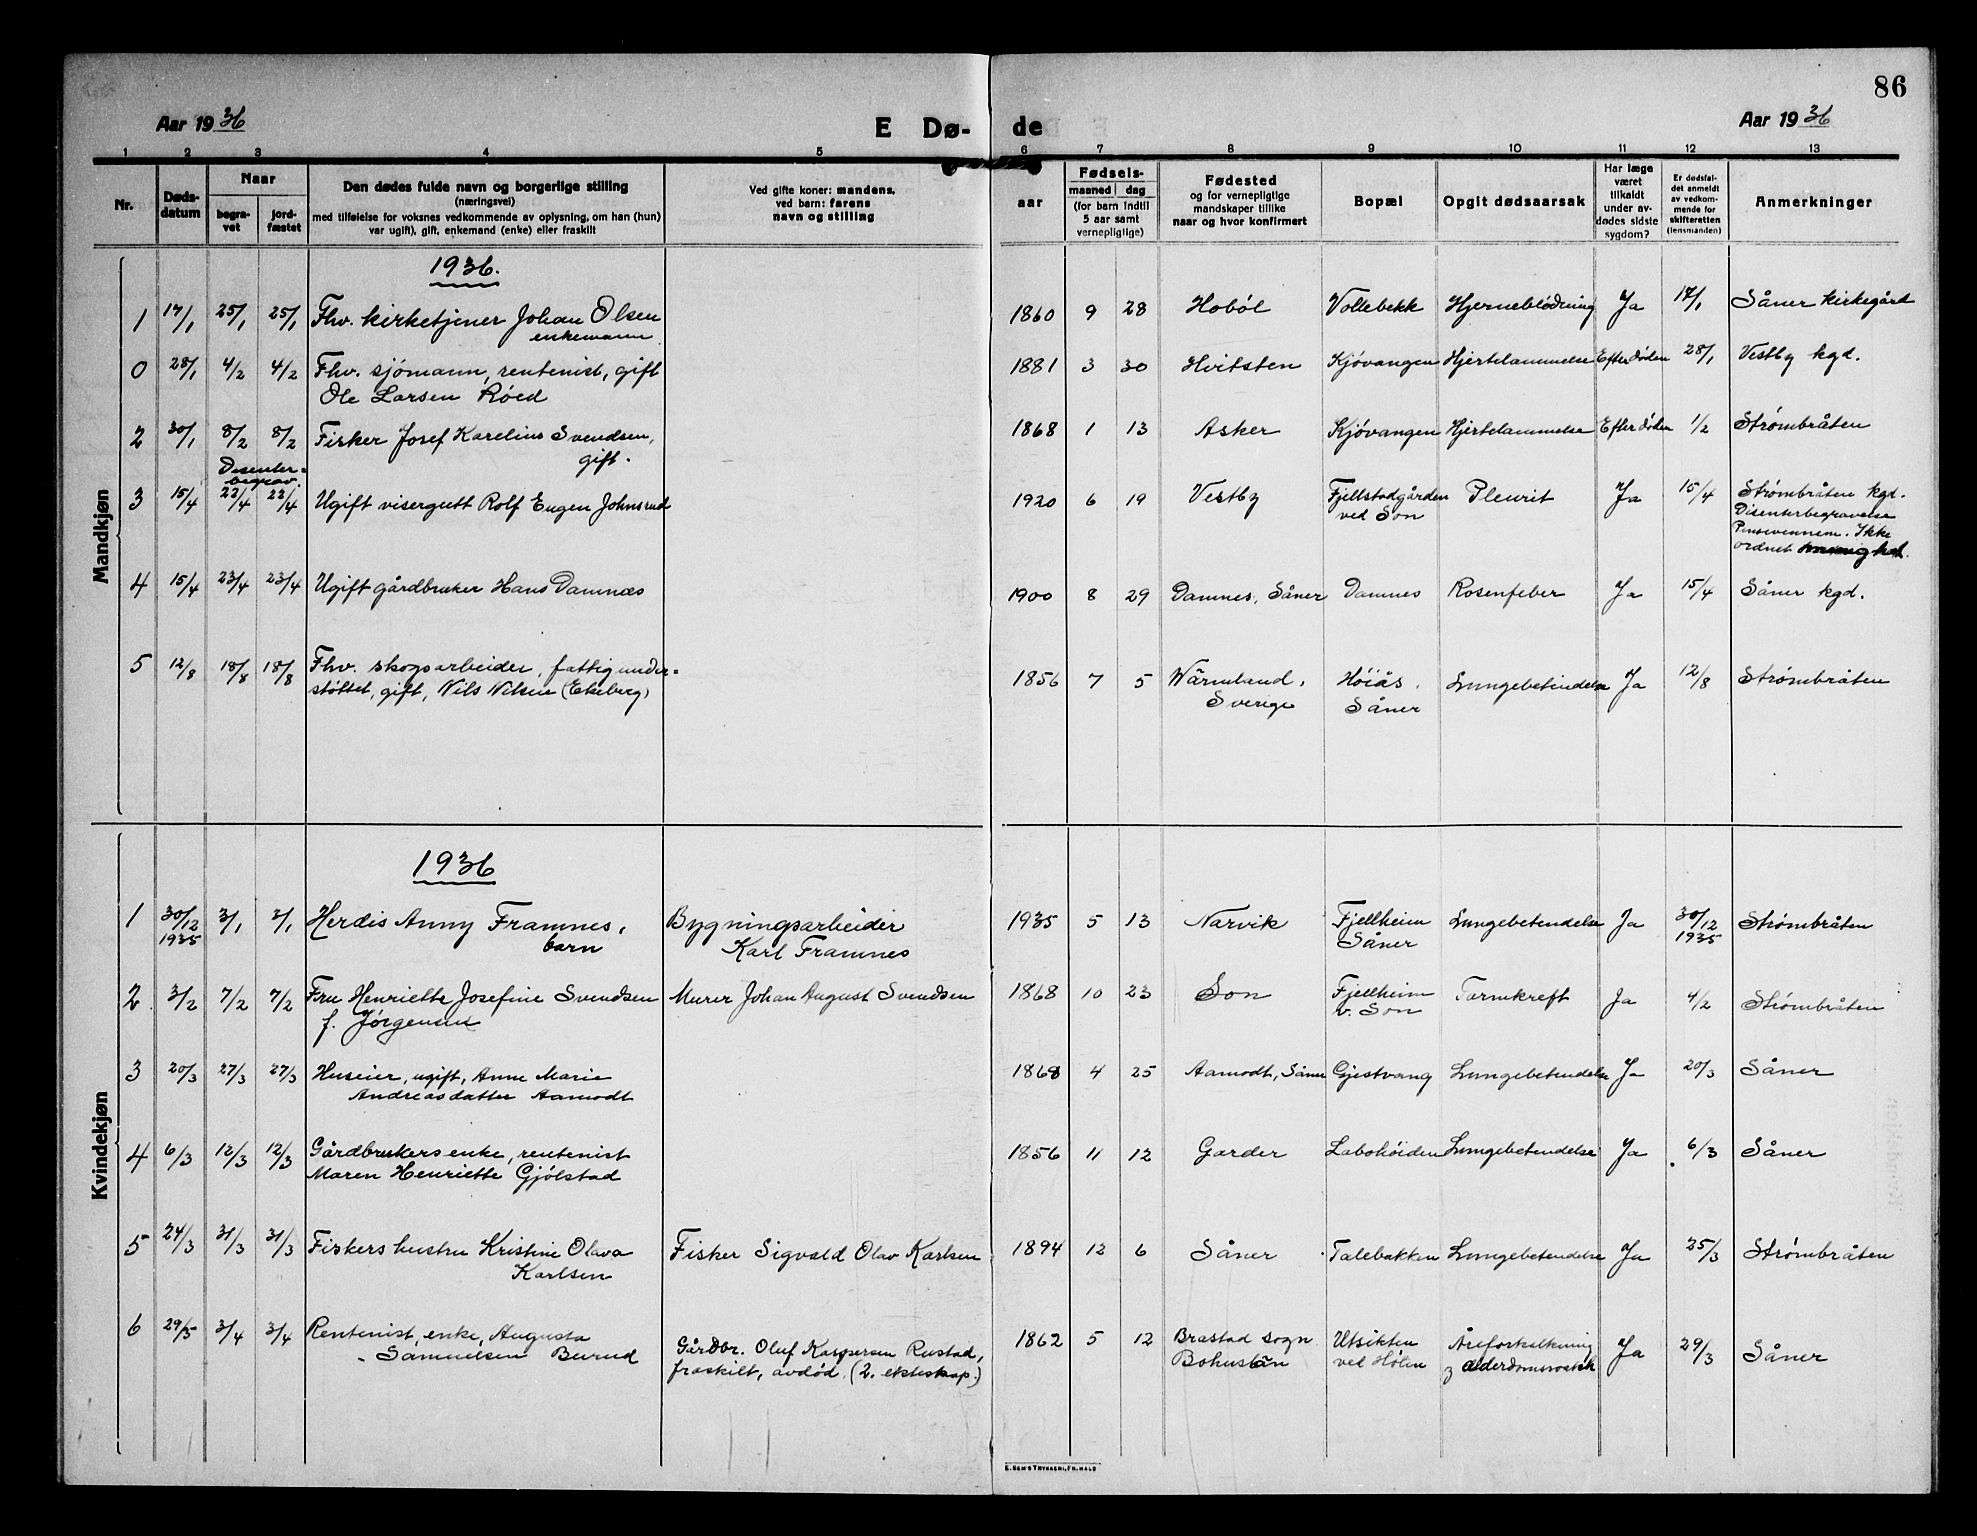 86
Aar 1936 E Dø- de Aar 1936
1 2 3 4 5 6 7 8 9 10 11 12 13
Nr.
Døds-
datum
Naar
begra-
vet
jord-
fæstet
Den dødes fulde navn og borgerlige stilling
(næringsvei)
med tilføielse for voksnes vedkommende av oplysning, om han (hun)
var ugift), gift, enkemand (enke) eller fraskilt
Ved gifte koner: mandens,
ved barn: farens
navn og stilling
aar
Fødsels-
maaned dag
(for barn indtil
5 aar samt
vernepligtige)
Fødested
og for vernepligtige
mandskaper tillike
naar og hvor konfirmert
Bopæl
Opgit dødsaarsak
Har læge
været
tilkaldt
under av-
dødes sidste
sygdom?
Er dødsfal-
det anmeldt
av vedkom-
mende for
skifteretten
(lensmanden)
Anmerkninger
Mandkjøn
1936.
1 17/1 25/1 25/1 Fhv. kirketjener Johan Olsen 1860 9 28 Hobøl Vollebekk Hjerneblødning Ja 17/1 Såner kirkegård
enkemann
0 28/1 4/2 4/2 Fhv. sjømann, rentenist, gift 1881 3 30 Hvitsten Kjøvangen Hjertelammelse Efter døden 28/1 Vestby kgd.
Ole Larsen Røed
2 30/1 8/2 8/2 Fisker Josef Karelius Svendsen, 1868 1 13 Asker Kjøvangen Hjertelammelse Efter døden 1/2 Strømbråten
gift.
Disenter-
begrav.
3 15/4 22/4 22/4 Ugift visergutt Rolf Eugen Johnsrud 1920 6 19 Vestby Fjellstadgården Pleurit Ja 15/4 Strømbråten kgd.
ved Son Disenterbegravelse
Pinsevennene. Ikke
ordnet
4 15/4 23/4 23/4 Ugift gårdbruker Hans Damnes 1900 8 29 Damnes, Såner Damnes Rosenfeber Ja 15/4 Såner kgd.
5 12/8 18/8 18/8 Fhv. skogsarbeider, fattigunder- 1856 7 5 Wärmland, Høiås, Lungebetindelse Ja 12/8 Strømbråten
støttet, gift, Nils Nilsen (Ekeberg) Sverige Såner
Kvindekjøn
1936
1 30/12 3/1 3/1 Herdis Anny Framnes, Bygningsarbeider 1935 5 13 Narvik Fjellheim Lungebetendelse Ja 30/12 Strømbråten
1935 barn Karl Framnes Såner 1935
2 3/2 7/2 7/2 Fru Henriette Josefine Svendsen Murer Johan August Svendsen 1868 10 23 Son Fjellheim Tarmkreft Ja 4/2 Strømbråten
f. Jørgensen v. Son
3 20/3 27/3 27/3 Huseier, ugift, Anne Marie 1868 4 25 Aamodt, Såner Gjestvang Lungebetendelse Ja 20/3 Såner
Andreasdatter Aamodt
4 6/3 12/3 12/3 Gårdbrukers enke, rentenist 1856 11 12 Garder Labohøiden Lungebetendelse Ja 6/3 Såner
Maren Henriette Gjølstad
5 24/3 31/3 31/3 Fiskers hustru Kristine Olava Fisker Sigvald Olav Karlsen 1894 12 6 Såner Talebakken Lungebetendelse Ja 25/3 Strømbråten
Karlsen
6 29/3 3/4 3/4 Rentenist, enke, Augusta Gårdbr. Oluf Kaspersen Rustad, 1862 5 12 Brastad sogn Utsikten Åreforkalkning Ja 29/3 Såner
Samuelsen Burud fraskilt, avdød. (2. ekteskap.) Bohuslän ved Hølen
E. SEM'S TRYKKERI, FR.HALD